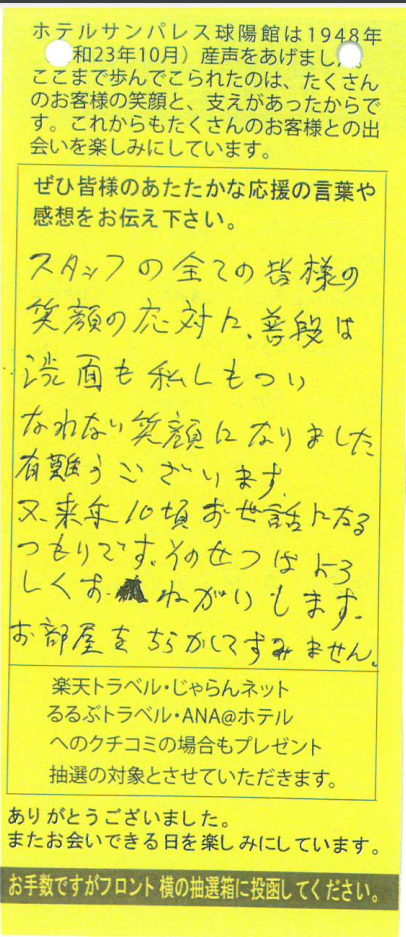 ホテルサンパレス球陽館は1948年
和23年10月）産声をあげまし
ここまで歩んでこられたのは、たくさん
のお客様の笑顔と、支えがあったからで
す。これからもたくさんのお客様との出
会いを楽しみにしています。
ぜひ皆様のあたたかな応援の言葉や
感想をお伝え下さい。
スタッフの全ての皆様の
笑顔の応対に、普段は
面も私しもつい
なれない笑顔になりました
有難うございます。
又、来年10頃お世話になる
つもりです。そのせつはよろ
しくおねがいします。
お部屋をちらかしてすみません。
楽天トラベル・じゃらんネット
るるぶトラベル・ANA@ホテル
へのクチコミの場合もプレゼント
抽選の対象とさせていただきます。
ありがとうございました。
またお会いできる日を楽しみにしています。
お手数ですがフロント横の抽選箱に投函してください。